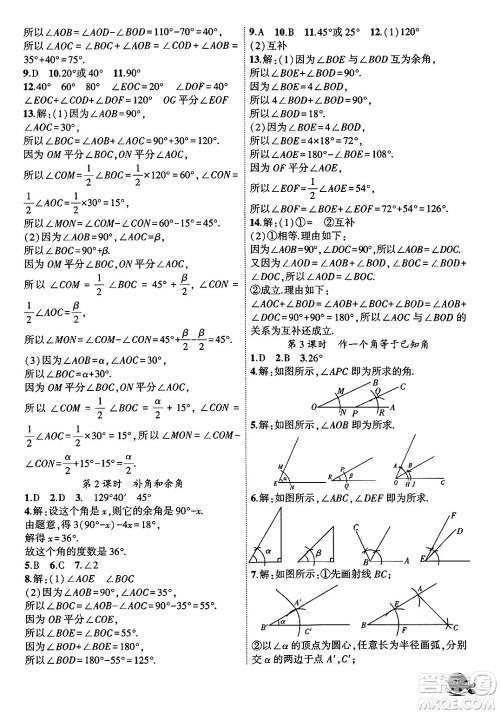 所以∠AOB=∠AOC-∠BOC=35°.
所以∠AOC=∠AOB+∠BOC=
35°+40°=75°.
9.D 10.20°或40° 11.90°
12.40° 60° 80° ∠EOC=20° ∠DOF=40°
∠EOC+∠COD+∠DOF=120° OG平分∠EOF
13.解:(1)因为∠AOB=90°,
∠AOC=30°,
所以∠BOC=∠AOB+∠AOC=120°.
因为OM平分∠BOC,ON平分∠AOC,
所以∠COM=1/2∠BOC=60°,∠CON=
1/2∠AOC=1/2×30°=15°,
所以∠MON=∠COM-∠CON=45°.
(2)因为∠AOB=90°,∠AOC=β,
所以∠BOC=90°+β.
因为OM平分∠BOC,ON平分∠AOC,
所以∠COM=1/2∠BOC=45°+β/2,∠CON=
1/2∠AOC=β/2,
所以∠MON=∠COM-∠CON=45°+β/2-β/2=45°.
(3)因为∠AOB=α,∠AOC=30°,
所以∠BOC=α+30°.
因为OM平分∠BOC,ON平分∠AOC,
所以∠COM=1/2∠BOC=α/2+15°,∠CON=
1/2∠AOC=1/2×30°=15°,
所以∠MON=∠COM-∠CON=α/2+15°-15°=α/2.
第2课时 补角和余角
1.D 2.D 3. 129°40′ 45°
4.解:设这个角是x,则它的余角是90°-x.
由题意,得3(90°-x)-(180°-x)=18°.
解得x=36°.
故这个角的度数是36°.
5.B 6.C 7.∠2
8.解:(1)∠AOE ∠BOC
(2)因为∠AOC=35°,
所以∠AOE=90°-∠AOC=55°,
所以∠BOC=90°-∠AOC=55°.
因为OB平分∠COE,
所以∠BOE=∠BOC=55°,
所以∠BOD=180°-∠BOC=125°.
9.A 10.B 11.45°或25° 12.(1)120°
(2)互补
13.解:(1)因为∠BOE与∠EOD互为余角,
所以∠BOE+∠EOD=∠BOD=90°.
因为∠BOD=4∠BOE,
所以4∠BOE=90°,
所以∠BOE=22.5°.
(2)因为∠AOD+∠BOD=180°,
∠BOD=4∠BOE,∠AOD=∠BOE,
所以∠BOE+4∠BOE=180°,
所以∠BOE=36°,
所以∠AOE=180°-∠BOE=144°.
因为OF平分∠AOE,
所以∠EOF=1/2∠AOE=1/2×144°=72°.
14.解:(1)①= ②互补
(2)①相等.理由如下:
因为∠AOB=90°,∠DOC=90°,
所以∠AOB=∠DOC,
所以∠AOB-∠DOB=∠DOC-∠DOB,
所以∠AOD=∠BOC.
②成立.理由如下:
∠AOC+∠BOD=∠AOB+∠BOC+∠BOD=
∠AOB+∠DOC=90°+90°=180°,所以∠AOC与∠BOD
的关系为互补还成立.
第3课时 作一个角等于已知角
1.D 2.B 3.26°
4.解:如图所示,∠APC即为所求的角.
5.解:如图所示,∠ABC即为所求的角.
6.解:如图所示,∠ABC,∠DEF即为所求的角.
7.解:如图所示:①先画射线BC;
②以∠α的顶点为圆心,任意长为半径画弧,分别
交∠α的两边于点A′,C′;